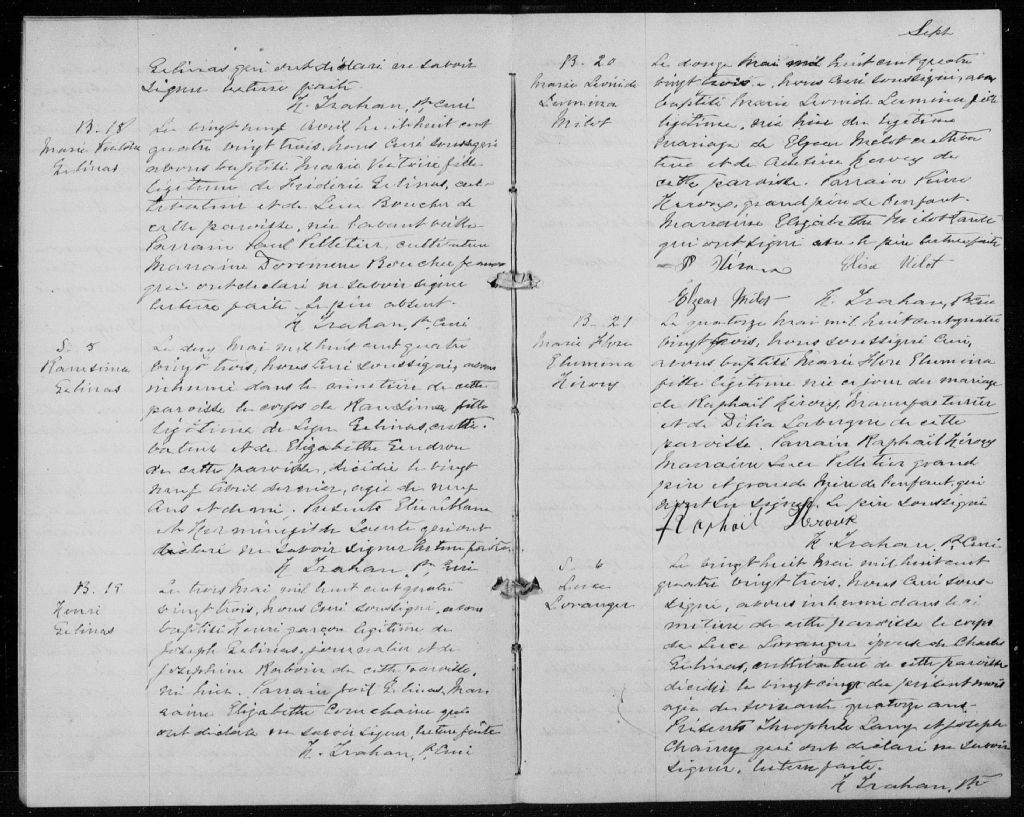 Gelinas qui ont déclaré ne savoir
signer lecture faite
H. Trahan, Ptre Curé
B. 18
Marie Victoire
Gelinas
Le vingt neuf Avril mil huit cent
quatre vingt trois, nous Curé soussigné
avons baptisé Marie Victoire fille
légitime de Fréderic Gelinas, cul-
tivateur et de Luce Boucher de
cette paroisse, née l'avant veille
Parrain Paul Pelletier, cultivateur
Marraine Doremene Boucher
qui ont déclaré ne savoir signer
lecture faite. Le père absent.
H. Trahan, Ptre Curé
S. 5
Gelinas
Le deux Mai mil huit cent quatre
vingt trois, nous Curé soussigné, avons
inhumé dans le cimetière de cette
paroisse le corps de fille
légitime de Gelinas, culti-
vateur et de Elizabeth Gendron
de cette paroisse, décédée le vingt
neuf Avril dernier, agée de neuf
Ans et demi. Présents
et Herménégilde qui ont
déclaré ne savoir signer lecture faite.
H. Trahan, Ptre Curé
B. 19
Henri
Gelinas
Le trois Mai mil huit cent quatre
vingt trois, nous Curé soussigné, avons
baptisé Henri garçon légitime de
Joseph Gelinas, journalier et de
Josephine de cette paroisse,
né hier. Parrain Gelinas, Mar-
raine Elizabeth qui
ont déclaré ne savoir signer, lecture faite
H. Trahan, Ptre Curé
Sept
B. 20
Marie Leonide
Lumina
Milot
Le douze Mai mil huit cent quatre
vingt trois, nous Curé soussigné, avons
baptisé Marie Leonide Lumina fille
légitime, née hier du légitime
mariage de Elzear Milot cultiva
teur et de Hervey de
cette paroisse. Parrain Pierre
Hervey, grand père de l'enfant
Marraine Elizabeth Milot tante
qui ont signé avec le père lecture faite
P Elisa Milot
Elzear Milot H. Trahan, Ptre Curé
B. 21
Marie Flore
Elumina
Héroux
Le quatorze Mai mil huit cent quatre
vingt trois, nous soussigné Curé,
avons baptisé Marie Flore Elumina
fille légitime née ce jour du mariage
de Raphaël Manufacturier
et de Délia Lavergne de cette
paroisse. Parrain Raphaël
Marraine Luce Pelletier grand
père et grande Mère de l'enfant, qui
n'ont su signer. Le père soussigné
Raphaël Heroux
H. Trahan, Ptre Curé
S. 6
Luce
Loranger
Le vingt huit Mai mil huit cent
quatre vingt trois, nous Curé sous-
signé, avons inhumé dans le ci
metière de cette paroisse le corps
de Luce Loranger épouse de Charles
Gelinas, cultivateur de cette paroisse
décédée le vingt cinq du présent mois
agée de soixante quatorze ans.
Présents Théophile Lamy et Joseph
qui ont déclaré ne savoir
signer, lecture faite.
H Trahan, Ptre